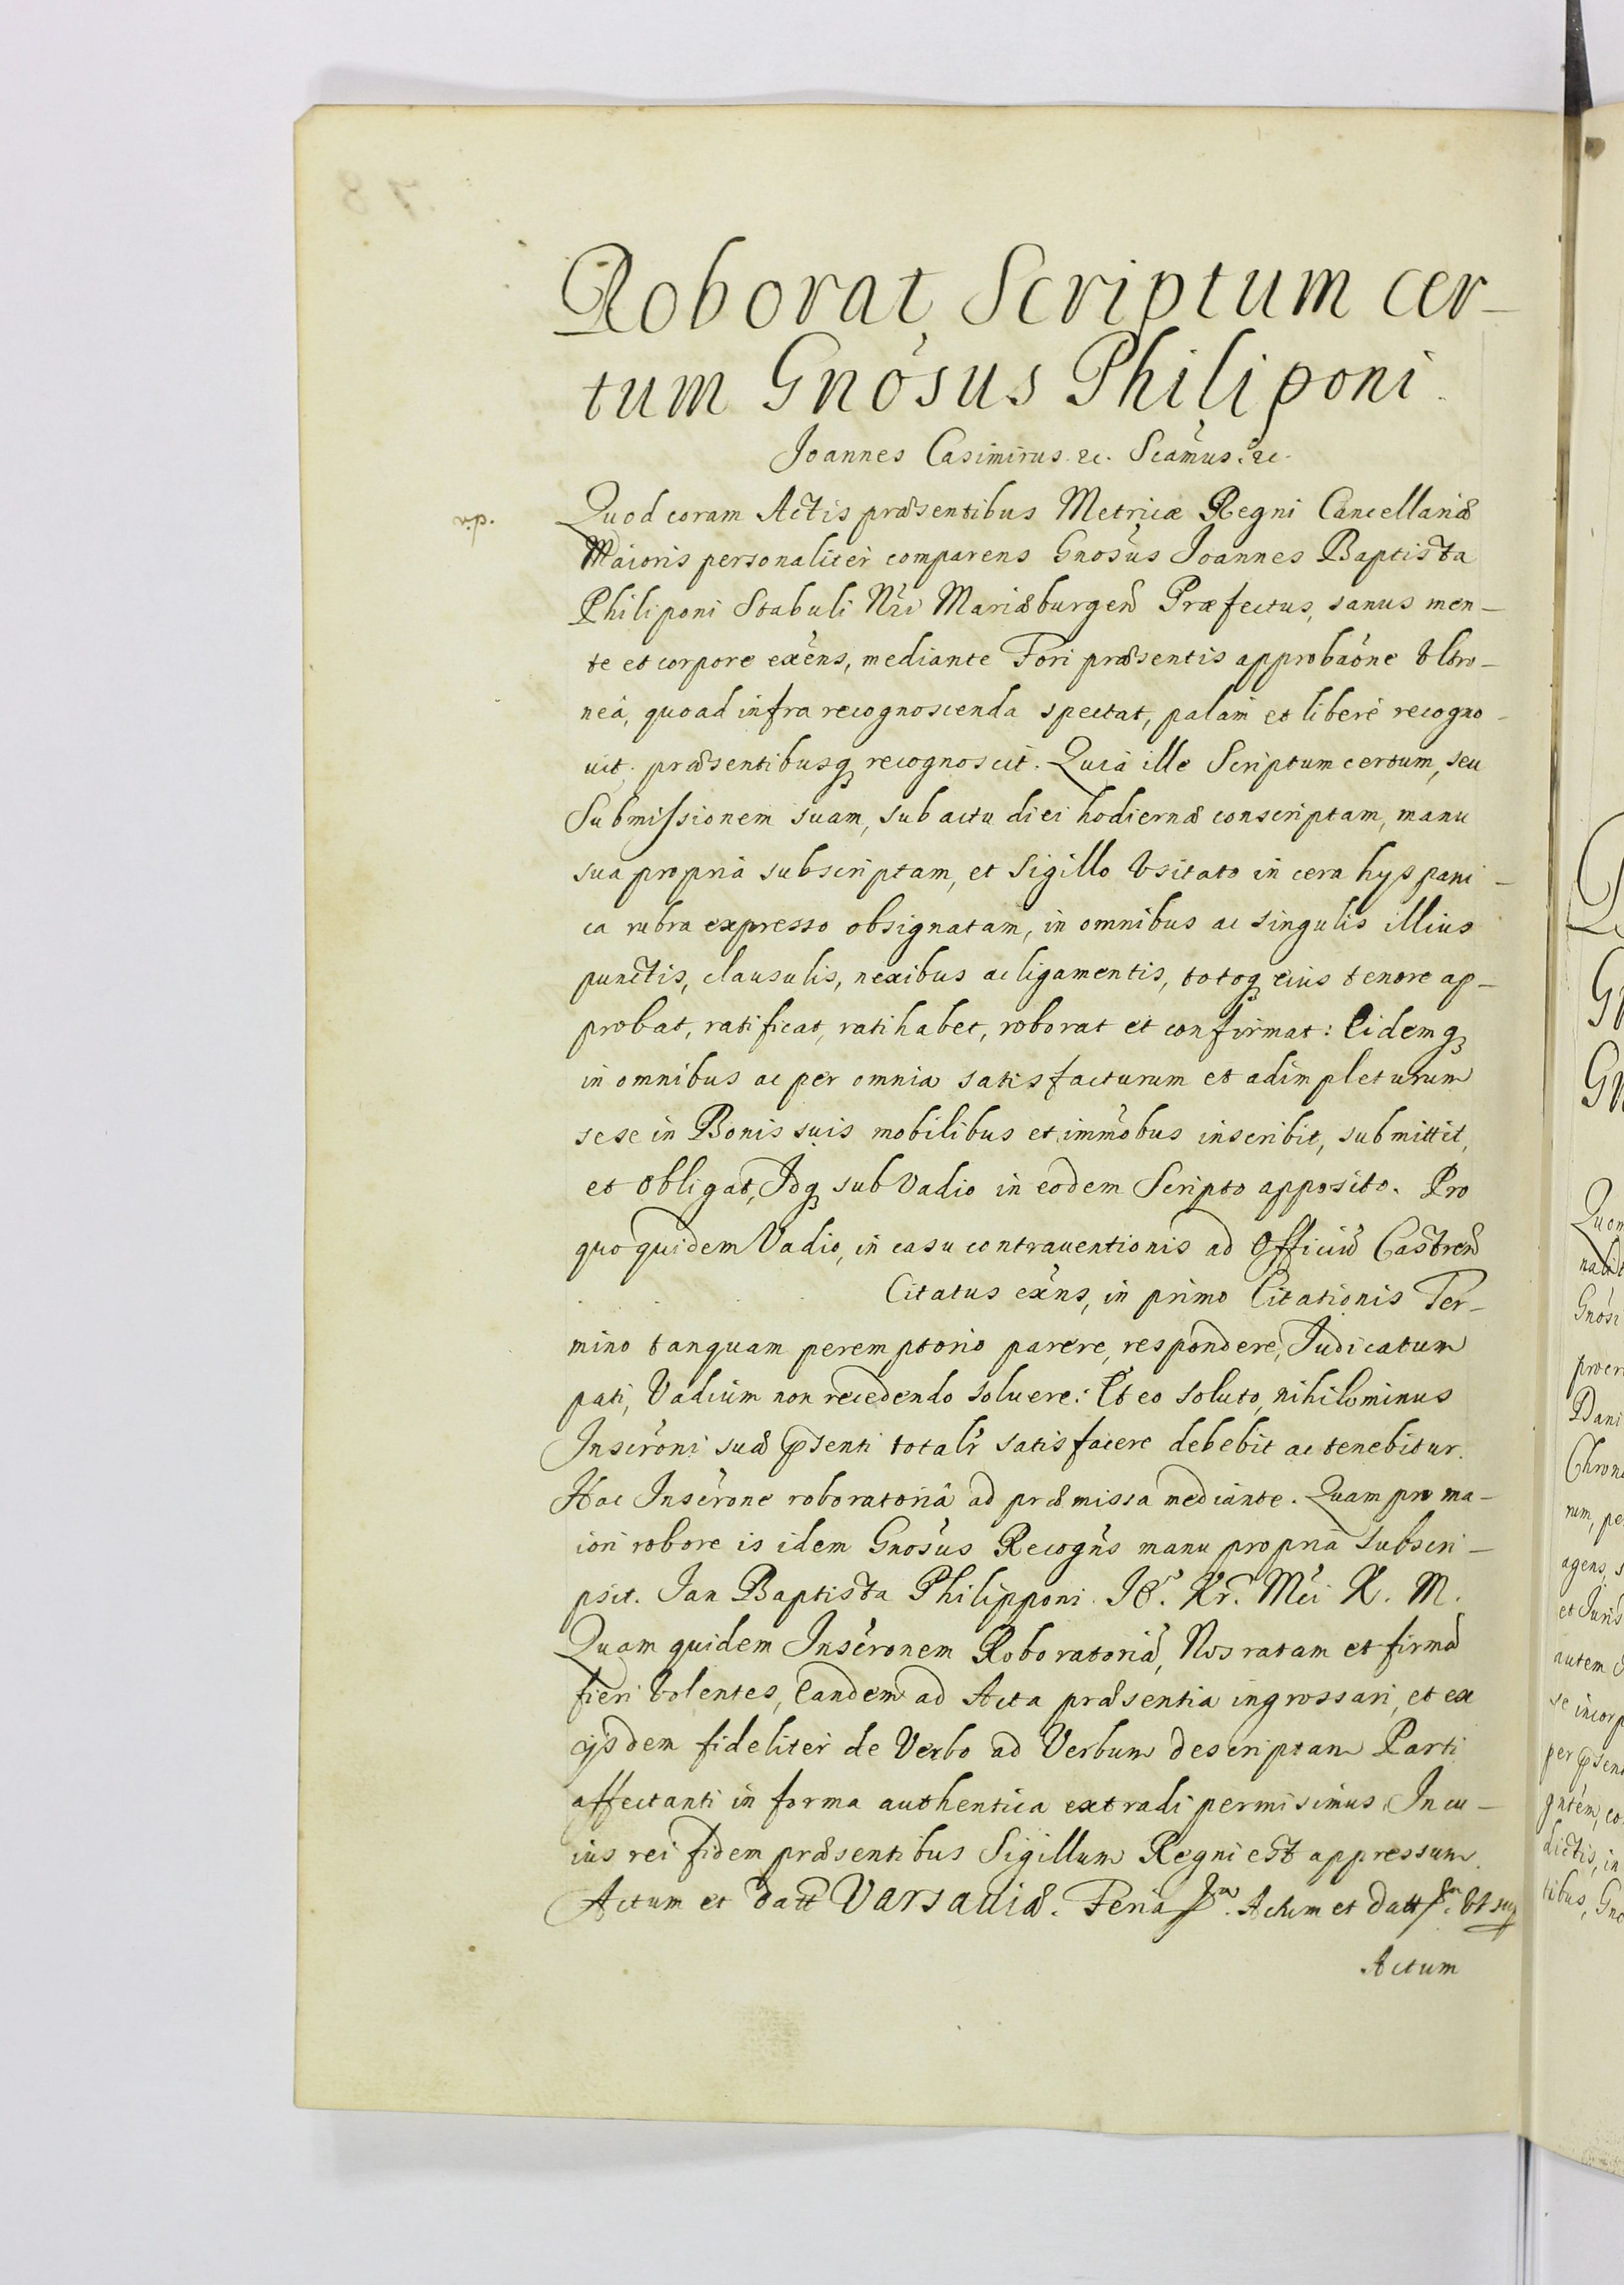 Roborat Scriptum cer-
tum Gnosus Philiponi.
Joannes Casimirus &c. Scamus &c.
Quod coram Actis præsentibus Metricæ Regni Cancellariæ
Maioris personaliter comparens Gnosus Joannes Baptista
Philiponi Stabuli Nri Mariæburgen Præfectus, sanus men-
te et corpore exens, mediante Fori præsentis approbaone Vltro-
nea, quoad infra recognoscenda spectat, palam et libere recogno-
uit, præsentibusq recognoscit. Quia ille Scriptum certum, seu
Submissionem suam, sub actu diei hodiernæ conscriptam, manu
sua propria subscriptam, et Sigillo Vsitato in cera hyspani-
ca rubra expresso obsignatam, in omnibus ac singulis illius
punctis, clausulis, nexibus ac ligamentis, totoq eius tenore ap-
probat, ratificat, ratihabet, roborat et confirmat: Eidemq
in omnibus ac per omnia satisfacturum et adimpleturum
sese in Bonis suis mobilibus et immobus inscribit, submittit,
et obligat, Idq sub Vadio in eodem Scripto apposito. Pro
quo quidem Vadio, in casu contrauentionis ad Officiu Castren
Citatus exns, in primo Citationis Ter-
mino tanquam peremptorio parere, respondere, Judicatum
pati, Vadium non recedendo soluere: Et eo soluto, nihilominus
Inscroni suæ psenti totalr satisfacere debebit ac tenebitur.
Hac Inscrone roboratoria ad præmissa mediante. Quam pro ma-
iori robore is idem Gnosus Recogns manu propria subscri-
psit. Jan Baptista Philipponi Kr. Mci K. M.
Quam quidem Inscronem Roboratoria, Nos ratam et firma
fieri Volentes, Eandem ad Acta præsentia ingrossari, et ex
ijsdem fideliter de Verbo ad Verbum descriptam Parti
affectanti in forma authentica extradi permisimus. In cu-
ius rei fidem præsentibus Sigillum Regni est appressum.
Actum et datt Varsauiæ. Feria Actum et datt Vt sup
Actum